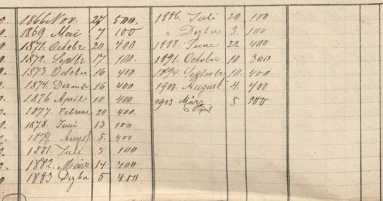 1866 Nov. 27 500.
1869 Mai 7 100
1871. Octobr 20 400
1872. Septbr 17 100
1873. Octobr 16 400
1874. Decembr 16 400
1876 April 10 400
1877. Februar 20 400
1878. Juni 13 100
1879 August 5 400
1881. Juli 5 100
1882. März 14 200
1883 Dezbr 5 400
1886. Juli 20 100
" Dezbr 3 100
1888. June 22 400
1891. October 10 300
1894. September 10 400
1900. August 4 400
1903 März 5 200
April